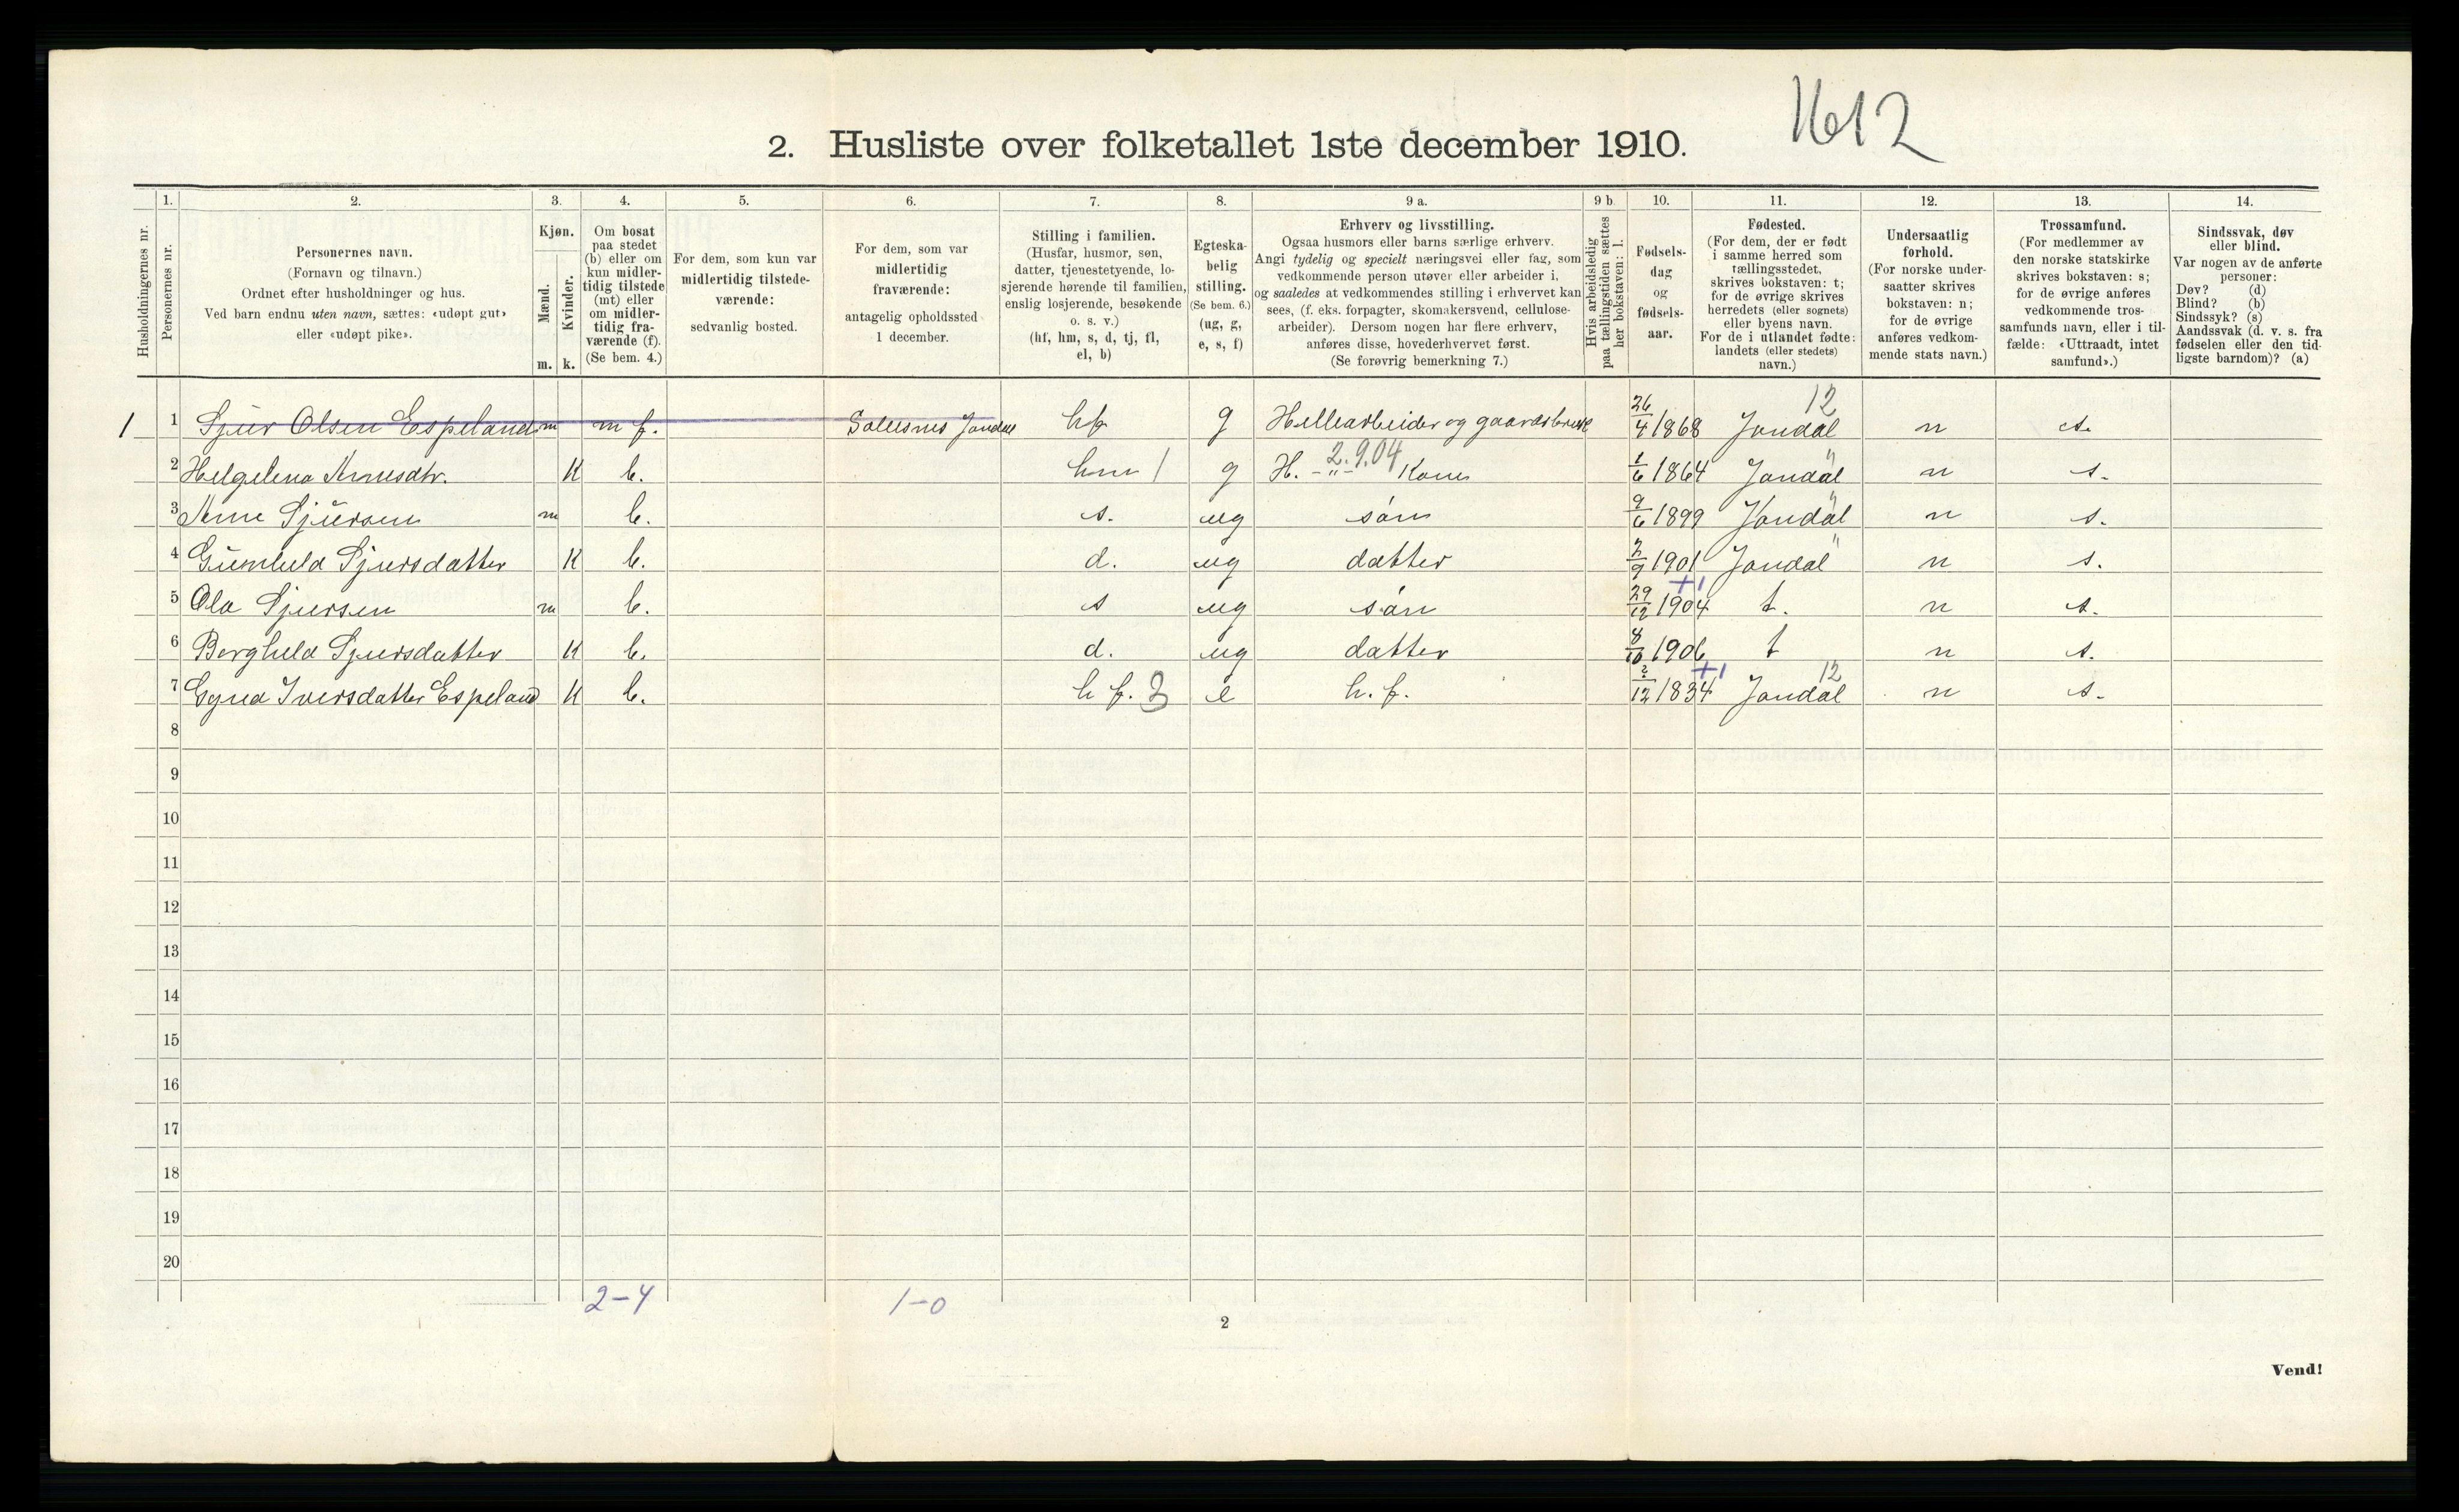 1612
2. Husliste over folketallet 1ste december 1910.
Husholdningernes nr.
1. Personernes nr.
2. Personernes navn. (Fornavn og tilnavn.) Ordnet efter husholdninger og hus. Ved barn endnu uten navn, sættes: «udøpt gut» eller «udøpt pike».
3. Kjøn. Mænd. m. Kvinder. k.
4. Om bosat paa stedet (b) eller om kun midler-tidig tilstede (mt) eller om midler-tidig fra-værende (f). (Se bem. 4.)
5. For dem, som kun var midlertidig tilstede-værende: sedvanlig bosted.
6. For dem, som var midlertidig fraværende: antagelig opholdssted 1 december.
7. Stilling i familien. (Husfar, husmor, søn, datter, tjenestetyende, lo-sjerende hørende til familien, enslig losjerende, besøkende o. s. v.) (hf, hm, s, d, tj, fl, el, b)
8. Egteska-belig stilling. (Se bem. 6.) (ug, g, e, s, f)
9 a. Erhverv og livsstilling. Ogsaa husmors eller barns særlige erhverv. Angi tydelig og specielt næringsvei eller fag, som vedkommende person utøver eller arbeider i, og saaledes at vedkommendes stilling i erhvervet kan sees, (f. eks. forpagter, skomakersvend, cellulose-arbeider). Dersom nogen har flere erhverv, anføres disse, hovederhvervet først. (Se forøvrig bemerkning 7.)
9 b. Hvis arbeidsledig paa tællingstiden sættes her bokstaven: l.
10. Fødsels-dag og fødsels-aar.
11. Fødested. (For dem, der er født i samme herred som tællingsstedet, skrives bokstaven: t; for de øvrige skrives herredets (eller sognets) eller byens navn. For de i utlandet fødte: landets (eller stedets) navn.)
12. Undersaatlig forhold. (For norske under-saatter skrives bokstaven: n; for de øvrige anføres vedkom-mende stats navn.)
13. Trossamfund. (For medlemmer av den norske statskirke skrives bokstaven: s; for de øvrige anføres vedkommende tros-samfunds navn, eller i til-fælde: «Uttraadt, intet samfund».)
14. Sindssvak, døv eller blind. Var nogen av de anførte personer: Døv? (d) Blind? (b) Sindssyk? (s) Aandssvak (d. v. s. fra fødselen eller den tid-ligste barndom)? (a)
1 1 Sjur Olsen Espeland m m f. Solesnes Jondal hf g Hellearbeider og gaardsbruk 26/4 1868 Jondal 12 n s.
2 Helgelena Arnesdtr. K b. hm 1 g H. -"- 2.9.04 Kone 1/6 1864 Jondal " n s.
3 Arne Sjursen m b. s. ug søn 9/6 1899 Jondal " n s.
4 Gunhild Sjursdatter K b. d. ug datter 2/9 1901 Jondal " n s.
5 Ola Sjursen m b. s ug søn 29/12 1904 +1 t. n s.
6 Berghild Sjursdatter K b. d. ug datter 8/10 1906 t n s.
7 Gyna Iversdatter Espeland K b. h f. 3 e h. f. 2/12 1834 +1 Jondal 12 n s.
8
9
10
11
12
13
14
15
16
17
18
19
20
2-4 1-0
2
Vend!